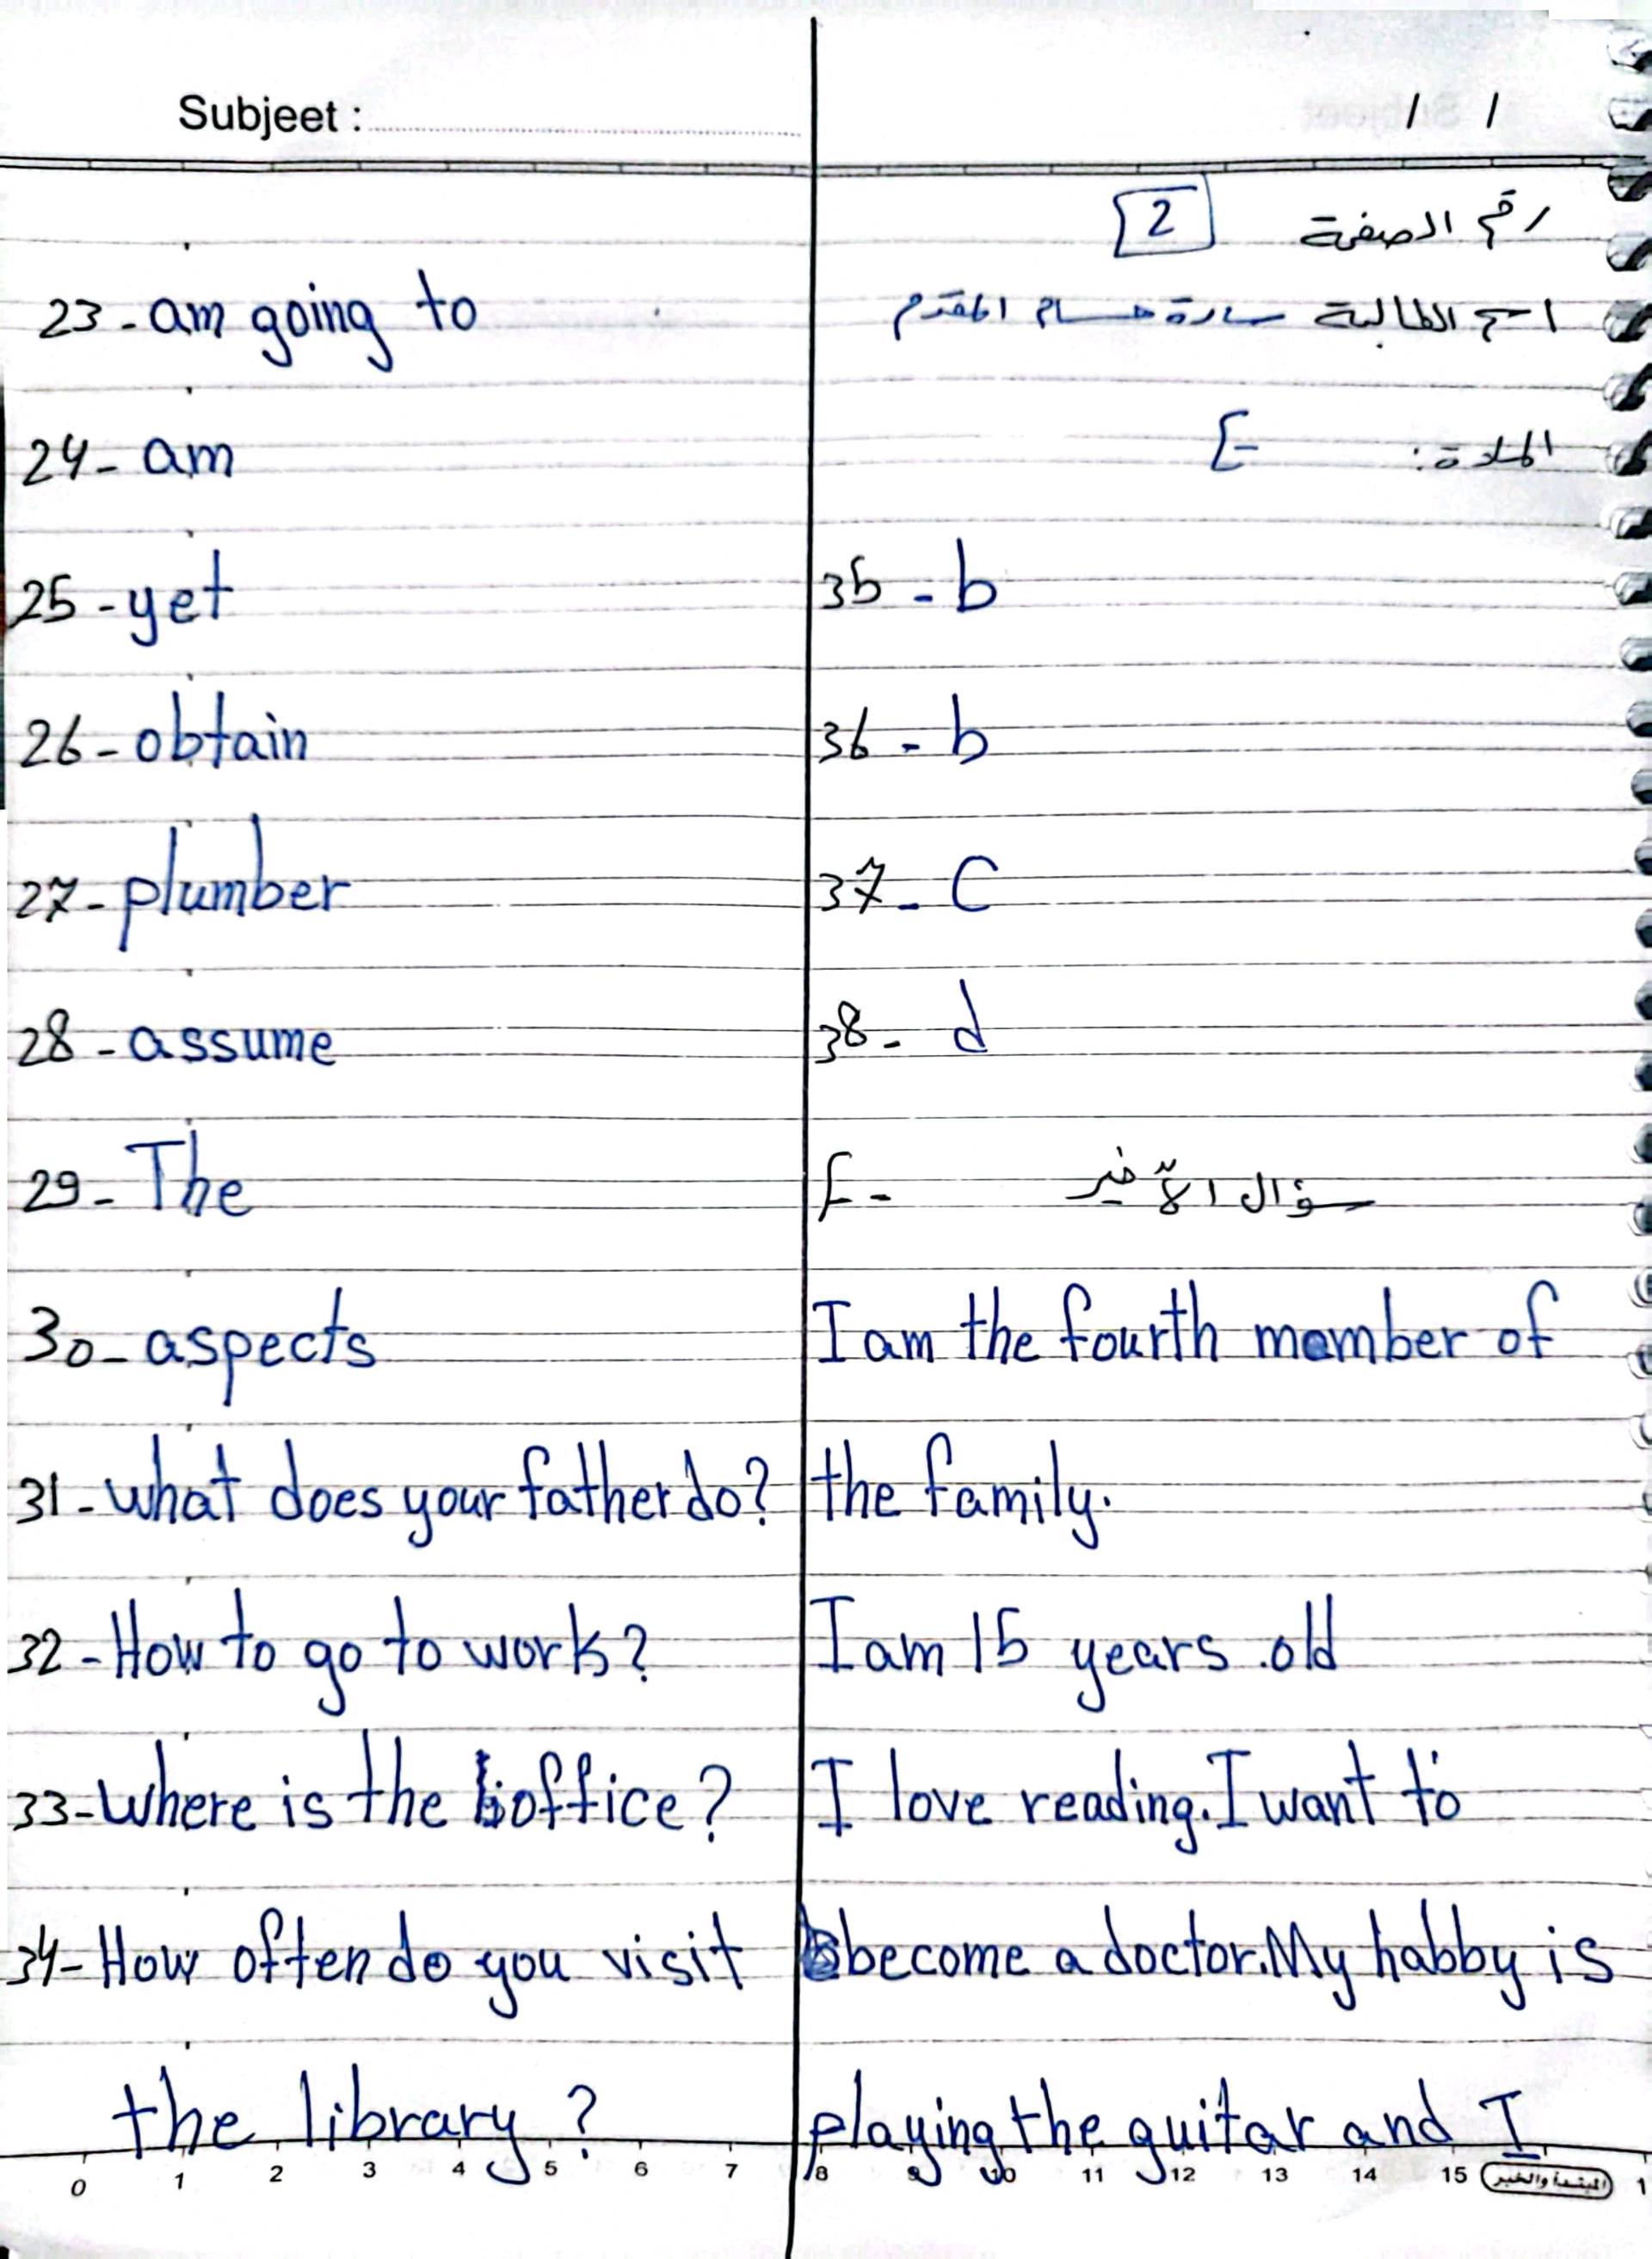 Subjeet :
/ /
رقم الصفحة 2
اسم الطالبة سارة حسام المقدم
المادة: E
23 - am going to
24 - am
25 - yet
26 - obtain
27 - plumber
28 - assume
29 - The
30 - aspects
31 - what does your father do?
32 - How to go to work?
33 - where is the office?
34 - How often do you visit
the library?
35 - b
36 - b
37 - C
38 - d
F - سؤال الأخير
I am the fourth member of
the family.
I am 15 years old
I love reading. I want to
become a doctor. My habby is
playing the guitar and I
0 1 2 3 4 5 6 7 8 9 10 11 12 13 14 15 1
المبتدأ والخبر